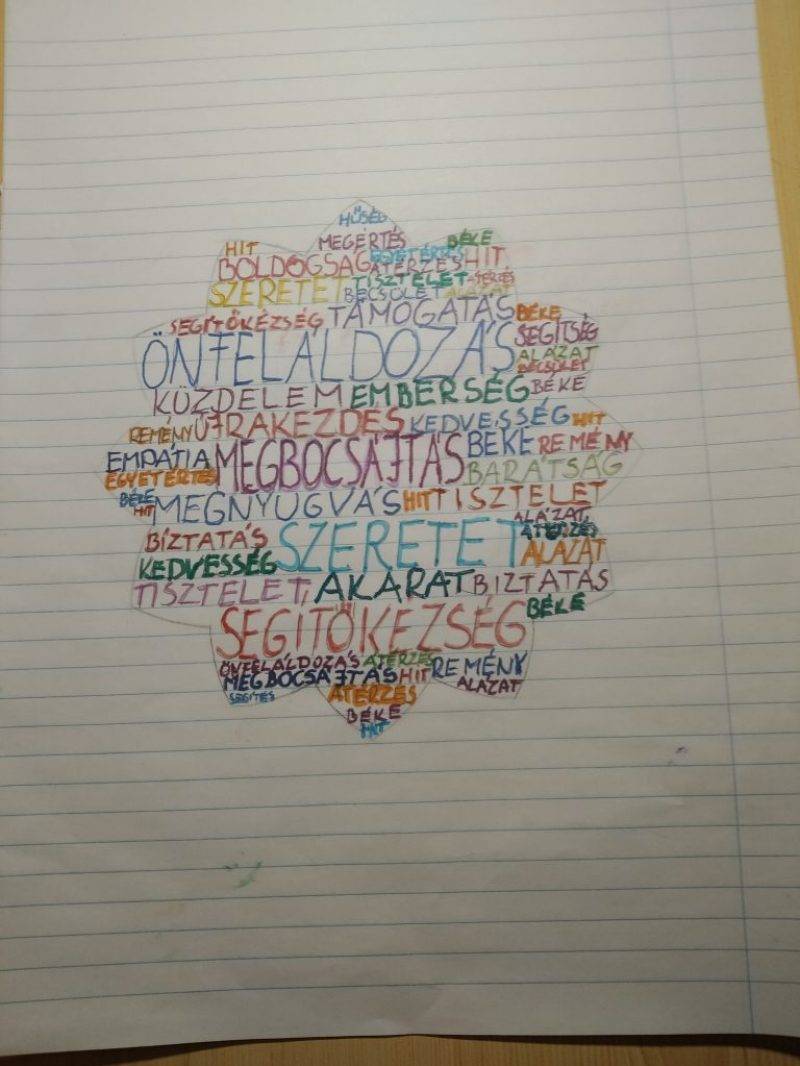 HŰSÉG
HIT MEGÉRTÉS BÉKE
BOLDOGSÁG EGYETÉRTÉS ÁTÉRZÉS HIT
SZERETET TISZTELET
BECSÜLET ALÁZAT
SEGÍTŐKÉZSÉG TÁMOGATÁS BÉKE
ÖNFELÁLDOZÁS SEGÍTSÉG
ALÁZAT
BECSÜLET
KÜZDELEM EMBERSÉG BÉKE
REMÉNY ÚJRAKEZDÉS KEDVESSÉG HIT
EMPÁTIA MEGBOCSÁJTÁS BÉKE REMÉNY
EGYETÉRTÉS BARÁTSÁG
BÉKE HIT MEGNYUGVÁS HIT TISZTELET
BÍZTATÁS SZERETET ALÁZAT,
ÁTÉRZÉS
KEDVESSÉG ALÁZAT
TISZTELET, AKARAT BIZTATÁS
SEGÍTŐKÉZSÉG BÉKE
ÖNFELÁLDOZÁS ÁTÉRZÉS REMÉNY
MEGBOCSÁJTÁS HIT ALÁZAT
SEGÍTÉS ÁTÉRZÉS
BÉKE
HIT